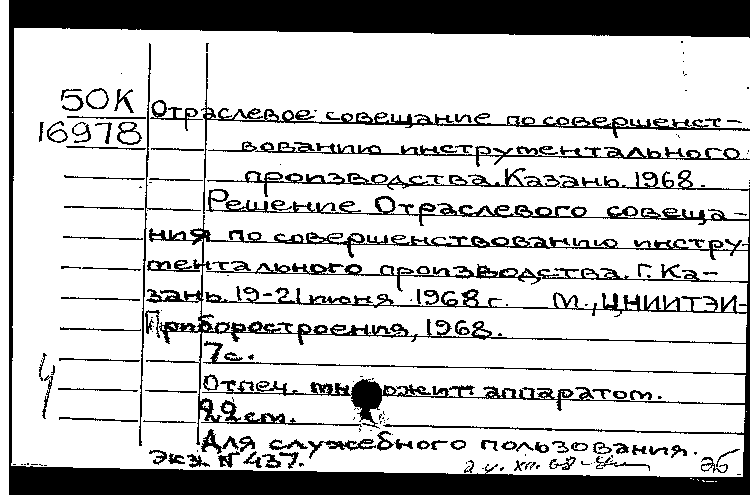 50К
16978
Отраслевое совещание по совершенст-
вованию инструментального
производства. Казань. 1968.
Решение Отраслевого совеща-
ния по совершенствованию инстру-
ментального производства. Г. Ка-
зань. 19-21 июня 1968 г. М., ЦНИИТЭИ-
Приборостроения, 1968.
7 с.
Отпеч. множит аппаратом.
22 cm.
Для служебного пользования.
Экз. № 437.
эб